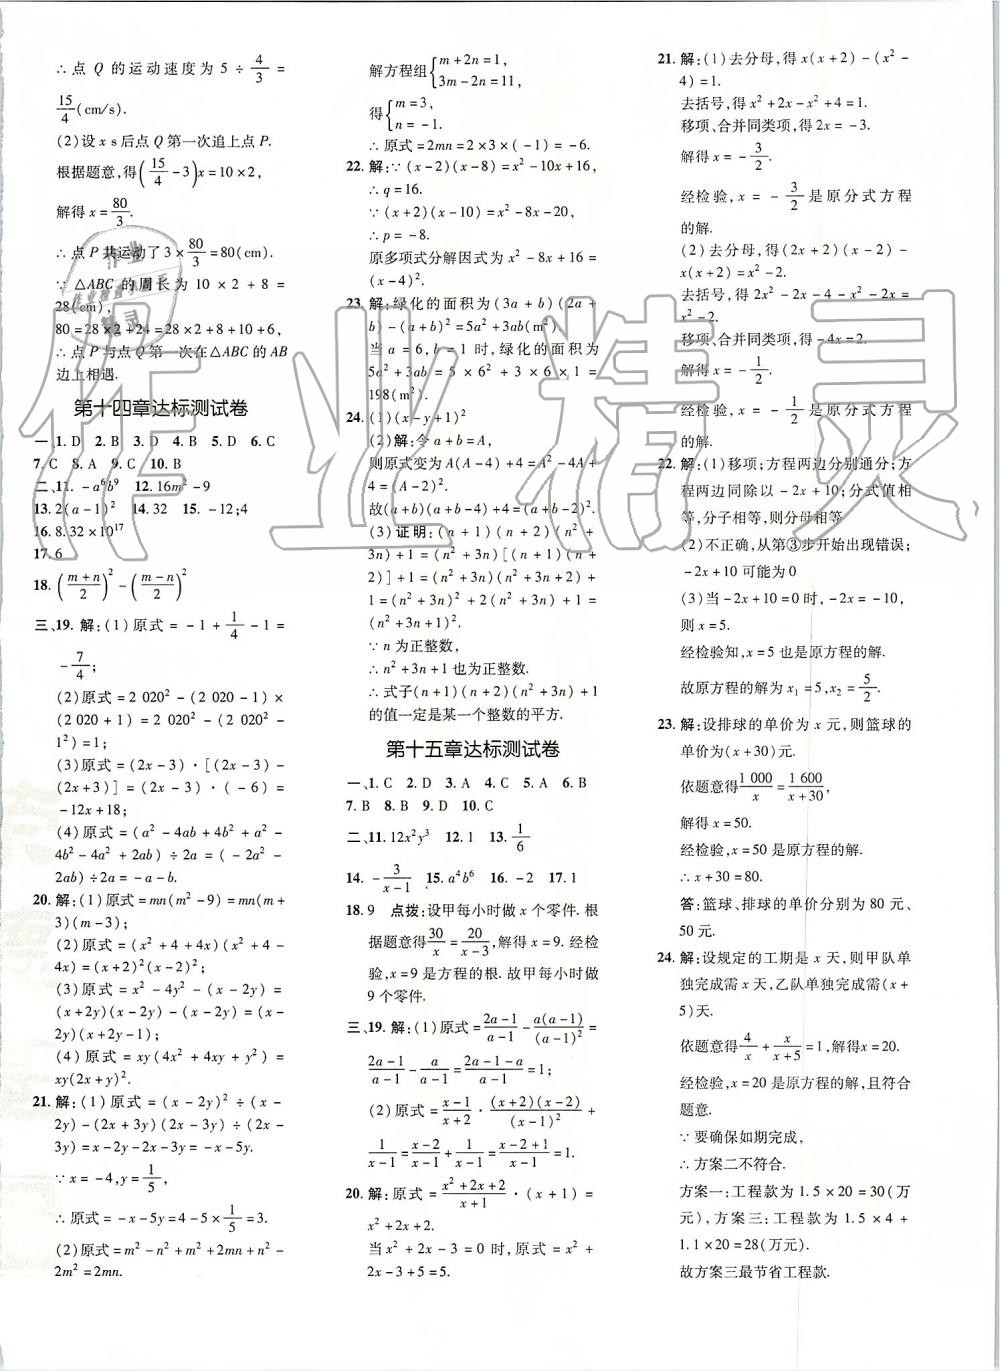 ∴点 Q 的运动速度为 5 ÷ 4/3 =
15/4(cm/s).
(2)设 x s后点 Q 第一次追上点 P.
根据题意,得(15/4 - 3)x = 10 × 2,
解得 x = 80/3.
∴点 P 共运动了 3 × 80/3 = 80(cm).
∵ △ABC 的周长为 10 × 2 + 8 =
28(cm),
80 = 28 × 2 + 24 = 28 × 2 + 8 + 10 + 6,
∴点 P 与点 Q 第一次在△ABC 的 AB
边上相遇.
第十四章达标测试卷
一、1. D 2. B 3. D 4. B 5. D 6. C
7. C 8. A 9. C 10. B
二、11. -a⁶b⁹ 12. 16m² - 9
13. 2(a - 1)² 14. 32 15. -12;4
16. 8.32 × 10¹⁷
17. 6
18. ((m+n)/2)² - ((m-n)/2)²
三、19. 解:(1)原式 = -1 + 1/4 - 1 =
-7/4;
(2)原式 = 2 020² - (2 020 - 1) ×
(2 020 + 1) = 2 020² - (2 020² -
1²) = 1;
(3)原式 = (2x - 3)·[(2x - 3) -
(2x + 3)] = (2x - 3)·(-6) =
-12x + 18;
(4)原式 = (a² - 4ab + 4b² + a² -
4b² - 4a² + 2ab) ÷ 2a = (-2a² -
2ab) ÷ 2a = -a - b.
20. 解:(1)原式 = mn(m² - 9) = mn(m +
3)(m - 3);
(2)原式 = (x² + 4 + 4x)(x² + 4 -
4x) = (x + 2)²(x - 2)²;
(3)原式 = x² - 4y² - (x - 2y) =
(x + 2y)(x - 2y) - (x - 2y) = (x -
2y)(x + 2y - 1);
(4)原式 = xy(4x² + 4xy + y²) =
xy(2x + y)².
21. 解:(1)原式 = (x - 2y)² ÷ (x -
2y) - (2x + 3y)(2x - 3y) ÷ (2x -
3y) = x - 2y - 2x - 3y = -x - 5y.
∵ x = -4, y = 1/5,
∴原式 = -x - 5y = 4 - 5 × 1/5 = 3.
(2)原式 = m² - n² + m² + 2mn + n² -
2m² = 2mn.
解方程组{m + 2n = 1, 3m - 2n = 11,
得{m = 3, n = -1.
∴原式 = 2mn = 2 × 3 × (-1) = -6.
22. 解:∵(x - 2)(x - 8) = x² - 10x + 16,
∴ q = 16.
∵(x + 2)(x - 10) = x² - 8x - 20,
∴ p = -8.
原多项式分解因式为 x² - 8x + 16 =
(x - 4)².
23. 解:绿化的面积为(3a + b)(2a +
b) - (a + b)² = 5a² + 3ab(m²).
当 a = 6, b = 1 时,绿化的面积为
5a² + 3ab = 5 × 6² + 3 × 6 × 1 =
198(m²).
24. (1)(x - y + 1)²
(2)解:令 a + b = A,
则原式变为 A(A - 4) + 4 = A² - 4A +
4 = (A - 2)²,
故(a + b)(a + b - 4) + 4 = (a + b - 2)².
(3)证明:(n + 1)(n + 2)(n² +
3n) + 1 = (n² + 3n)[(n + 1)(n +
2)] + 1 = (n² + 3n)(n² + 3n + 2) +
1 = (n² + 3n)² + 2(n² + 3n) + 1 =
(n² + 3n + 1)².
∵ n 为正整数,
∴ n² + 3n + 1 也为正整数.
∴式子(n + 1)(n + 2)(n² + 3n) + 1
的值一定是某一个整数的平方.
第十五章达标测试卷
一、1. C 2. D 3. A 4. C 5. A 6. B
7. B 8. B 9. D 10. C
二、11. 12x²y³ 12. 1 13. 1/6
14. -3/(x-1) 15. a⁴b⁶ 16. -2 17. 1
18. 9 点拨:设甲每小时做 x 个零件. 根
据题意得30/x = 20/(x-3),解得 x = 9. 经检
验,x = 9 是方程的根. 故甲每小时做
9 个零件.
三、19. 解:(1)原式 = (2a-1)/(a-1) - a(a-1)/(a-1)² =
(2a-1)/(a-1) - a/(a-1) = (2a-1-a)/(a-1) = 1;
(2)原式 = (x-1)/(x+2) · (x+2)(x-2)/(x-1)² +
1/(x-1) = (x-2)/(x-1) + 1/(x-1) = (x-2+1)/(x-1) = 1.
20. 解:原式 = (x²+2x+2)/(x+1) · (x + 1) =
x² + 2x + 2.
当 x² + 2x - 3 = 0 时,原式 = x² +
2x - 3 + 5 = 5.
21. 解:(1)去分母,得 x(x + 2) - (x² -
4) = 1.
去括号,得 x² + 2x - x² + 4 = 1.
移项、合并同类项,得 2x = -3.
解得 x = -3/2.
经检验,x = -3/2 是原分式方程
的解.
(2)去分母,得 2x(x - 1) = x(x +
2) - x² - 2.
去括号,得 2x² - 2x - 4x² = x² + 2x -
x² - 2.
移项、合并同类项,得 -4x = -2.
解得 x = -1/2.
经检验,x = -1/2 是原分式方程
的解.
22. 解:(1)移项;方程两边分别通分;方
程两边同除以 -2x + 10;分式值相
等,分子相等,则分母相等
(2)不正确,从第③步开始出现错误;
-2x + 10 可能为 0
(3)当 -2x + 10 = 0 时, -2x = -10,
则 x = 5.
经检验知,x = 5 也是原方程的解.
故原方程的解为 x₁ = 5, x₂ = 5/2.
23. 解:设排球的单价为 x 元,则篮球的
单价为(x + 30)元.
依题意得1 000/x = 1 600/(x+30),
解得 x = 50.
经检验,x = 50 是原方程的解.
∴ x + 30 = 80.
答:篮球、排球的单价分别为 80 元、
50 元.
24. 解:设规定的工期是 x 天,则甲队单
独完成需 x 天,乙队单独完成需(x +
5)天.
依题意得4/x + x/(x+5) = 1,解得 x = 20.
经检验,x = 20 是原方程的解,且符合
题意.
∵要确保如期完成,
∴方案二不符合.
方案一:工程款为 1.5 × 20 = 30(万
元),方案三:工程款为 1.5 × 4 +
1.1 × 20 = 28(万元).
故方案三最节省工程款.
作业精灵